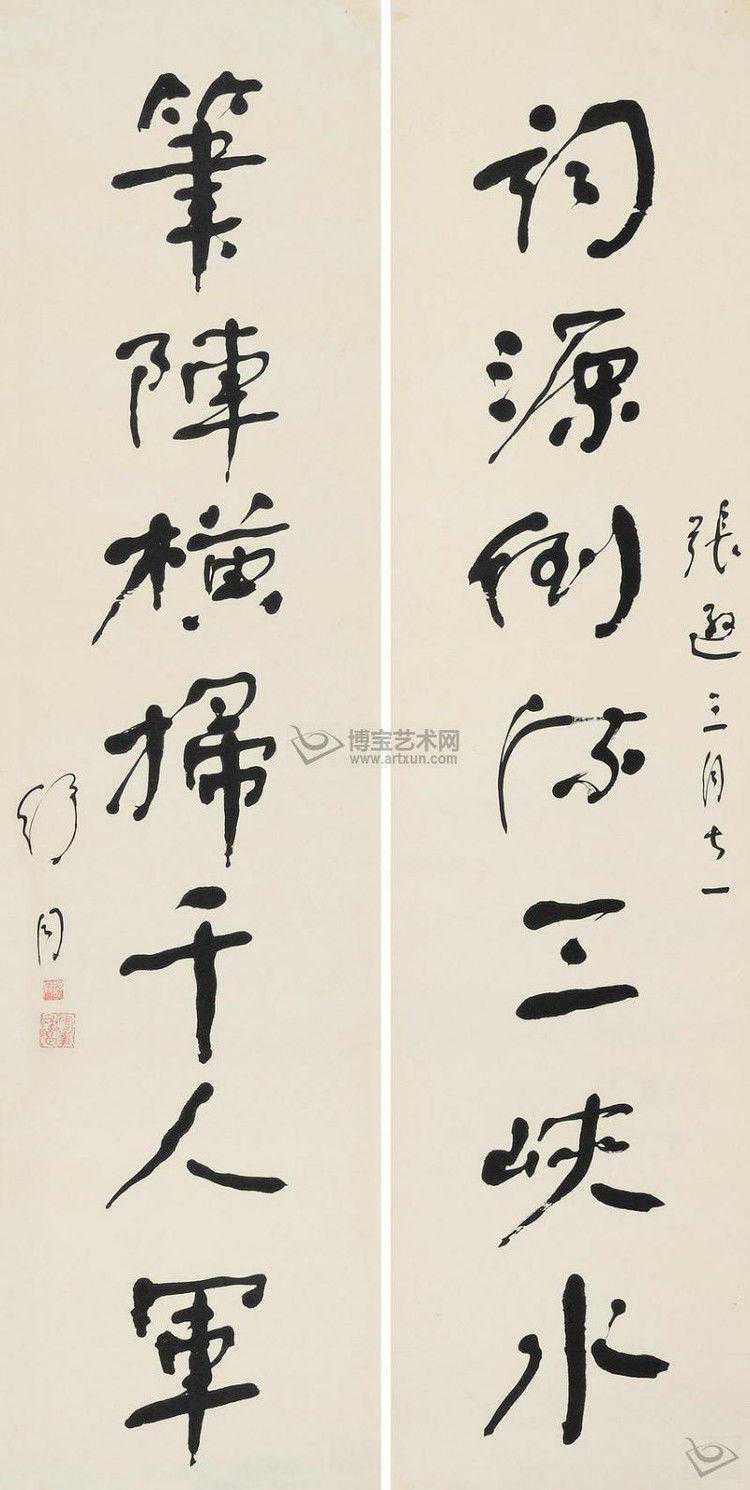 詞源倒流三峽水
張遜三月七一
筆陣橫掃千人軍
舒同
博宝艺术网
www.artxun.com